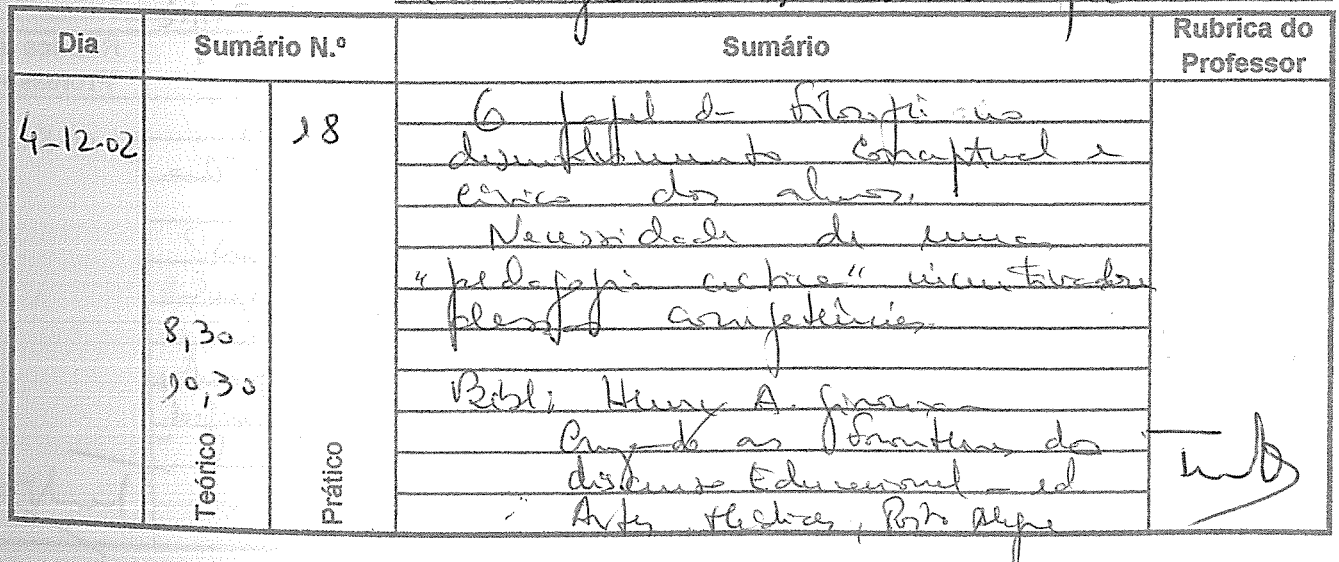 Dia Sumário N.º Sumário Rubrica do Professor
4-12-02 18
O papel da Filosofia no
desenvolvimento conceptual e
cívico dos alunos.
Necessidade de uma
"pedagogia activa" incentivadora
dessas competências.
8,30
10,30
Bibli: Henry A. Giroux
Cruzando as fronteiras do
discurso Educacional - ed
Artes Médicas, Porto Alegre
Teórico
Prático